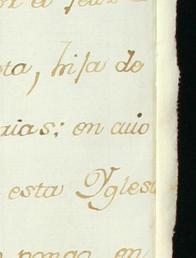 ta, hija de
rias: en cuio
esta Yglesi
pongo en